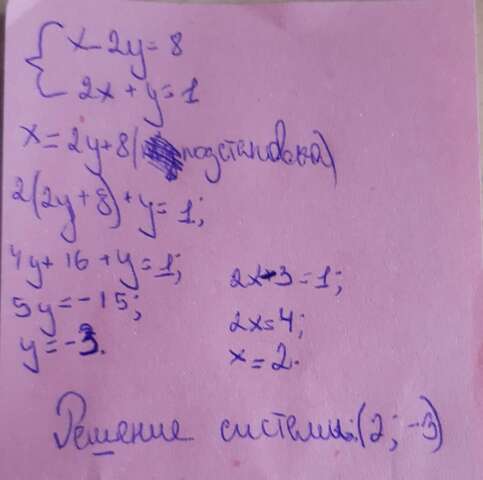 x - 2y = 8
2x + y = 1
x = 2y + 8 (подстановка)
2(2y + 8) + y = 1;
4y + 16 + y = 1;
5y = -15;
y = -3.
2x - 3 = 1;
2x = 4;
x = 2.
Решение системы: (2; -3)